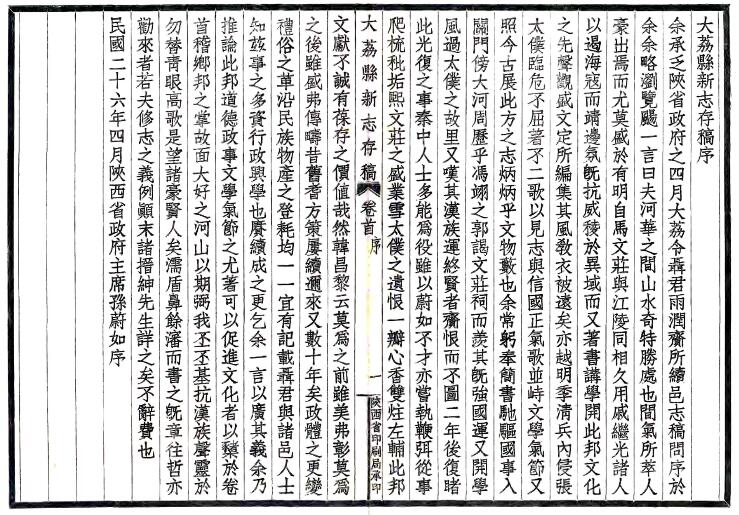 大荔縣新志存稿序
余承乏陝省政府之四月大荔令聶君雨潤齎所續邑志稿問序於
余余略瀏覽颺一言曰夫河華之間山水奇特勝處也間氣所萃人
豪出焉而尤莫盛於有明自馬文莊與江陵同相久用戚繼光諸人
以遏海寇而靖邊氛旣抗威稜於異域而又著書講學開此邦文化
之先聲觀盛文定所編集其風教衣被遠矣亦越明季清兵內侵張
太僕臨危不屈著不二歌以見志與信國正氣歌並峙文學氣節又
照今古展此方之志炳炳乎文物藪也余常躬奉簡書馳驅國事入
關門傍大河周歷乎馮翊之郭謁文莊祠而羨其旣強國運又開學
風過太僕之故里又嘆其漢族運終賢者齎恨而不圖二年後復睹
此光復之事秦中人士多能為役雖以蔚如不才亦嘗執鞭弭從事
爬梳秕垢熙文莊之盛業雪太僕之遺恨一瓣心香雙炷左輔此邦
大荔縣新志存稿 卷首 序 一 陝西省印刷局承印
文獻不誠有葆存之價值哉然韓昌黎云莫為之前雖美弗彰莫為
之後雖盛弗傳疇昔舊耆方策屢續邇來又數十年矣政體之更變
禮俗之革沿民族物產之登耗均一一宜有記載聶君與諸邑人士
知茲事之多資行政興學也賡續成之更乞余一言以廣其義余乃
推論此邦道德政事文學氣節之尤著可以促進文化者以纇於卷
首稽鄉邦之掌故面大好之河山以期弼我丕丕基抗漢族聲靈於
勿替青眼高歌是望諸豪賢人矣濡盾鼻餘瀋而書之旣章往哲亦
勸來者若夫修志之義例顚末諸搢紳先生詳之矣不辭費也
民國二十六年四月陝西省政府主席孫蔚如序